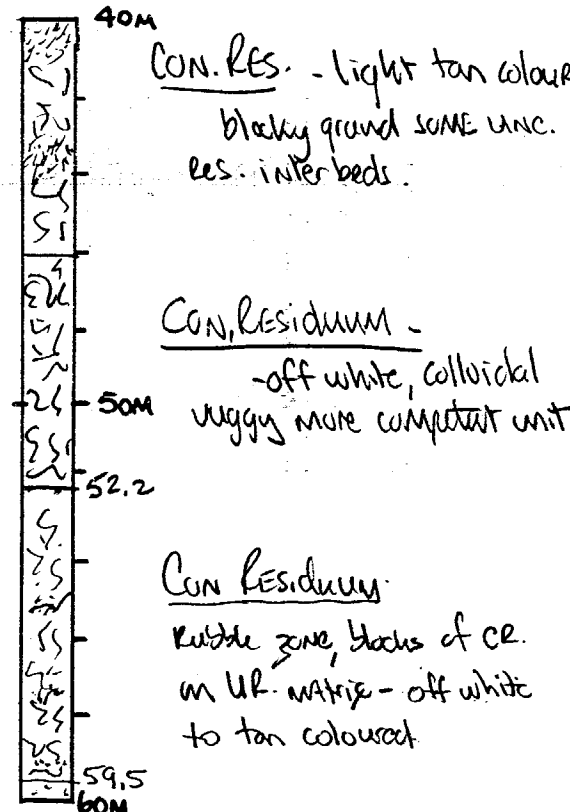 40M
CON. RES. - light tan colour
blocky ground SOME UNC.
Res. interbeds.
CON. RESIDUUM -
-off white, colloidal
50M
vuggy more competant unit
52.2
CON RESIDUUM.
Rubble zone, blocks of CR.
in UR. matrix - off white
to tan coloured
59.5
60M